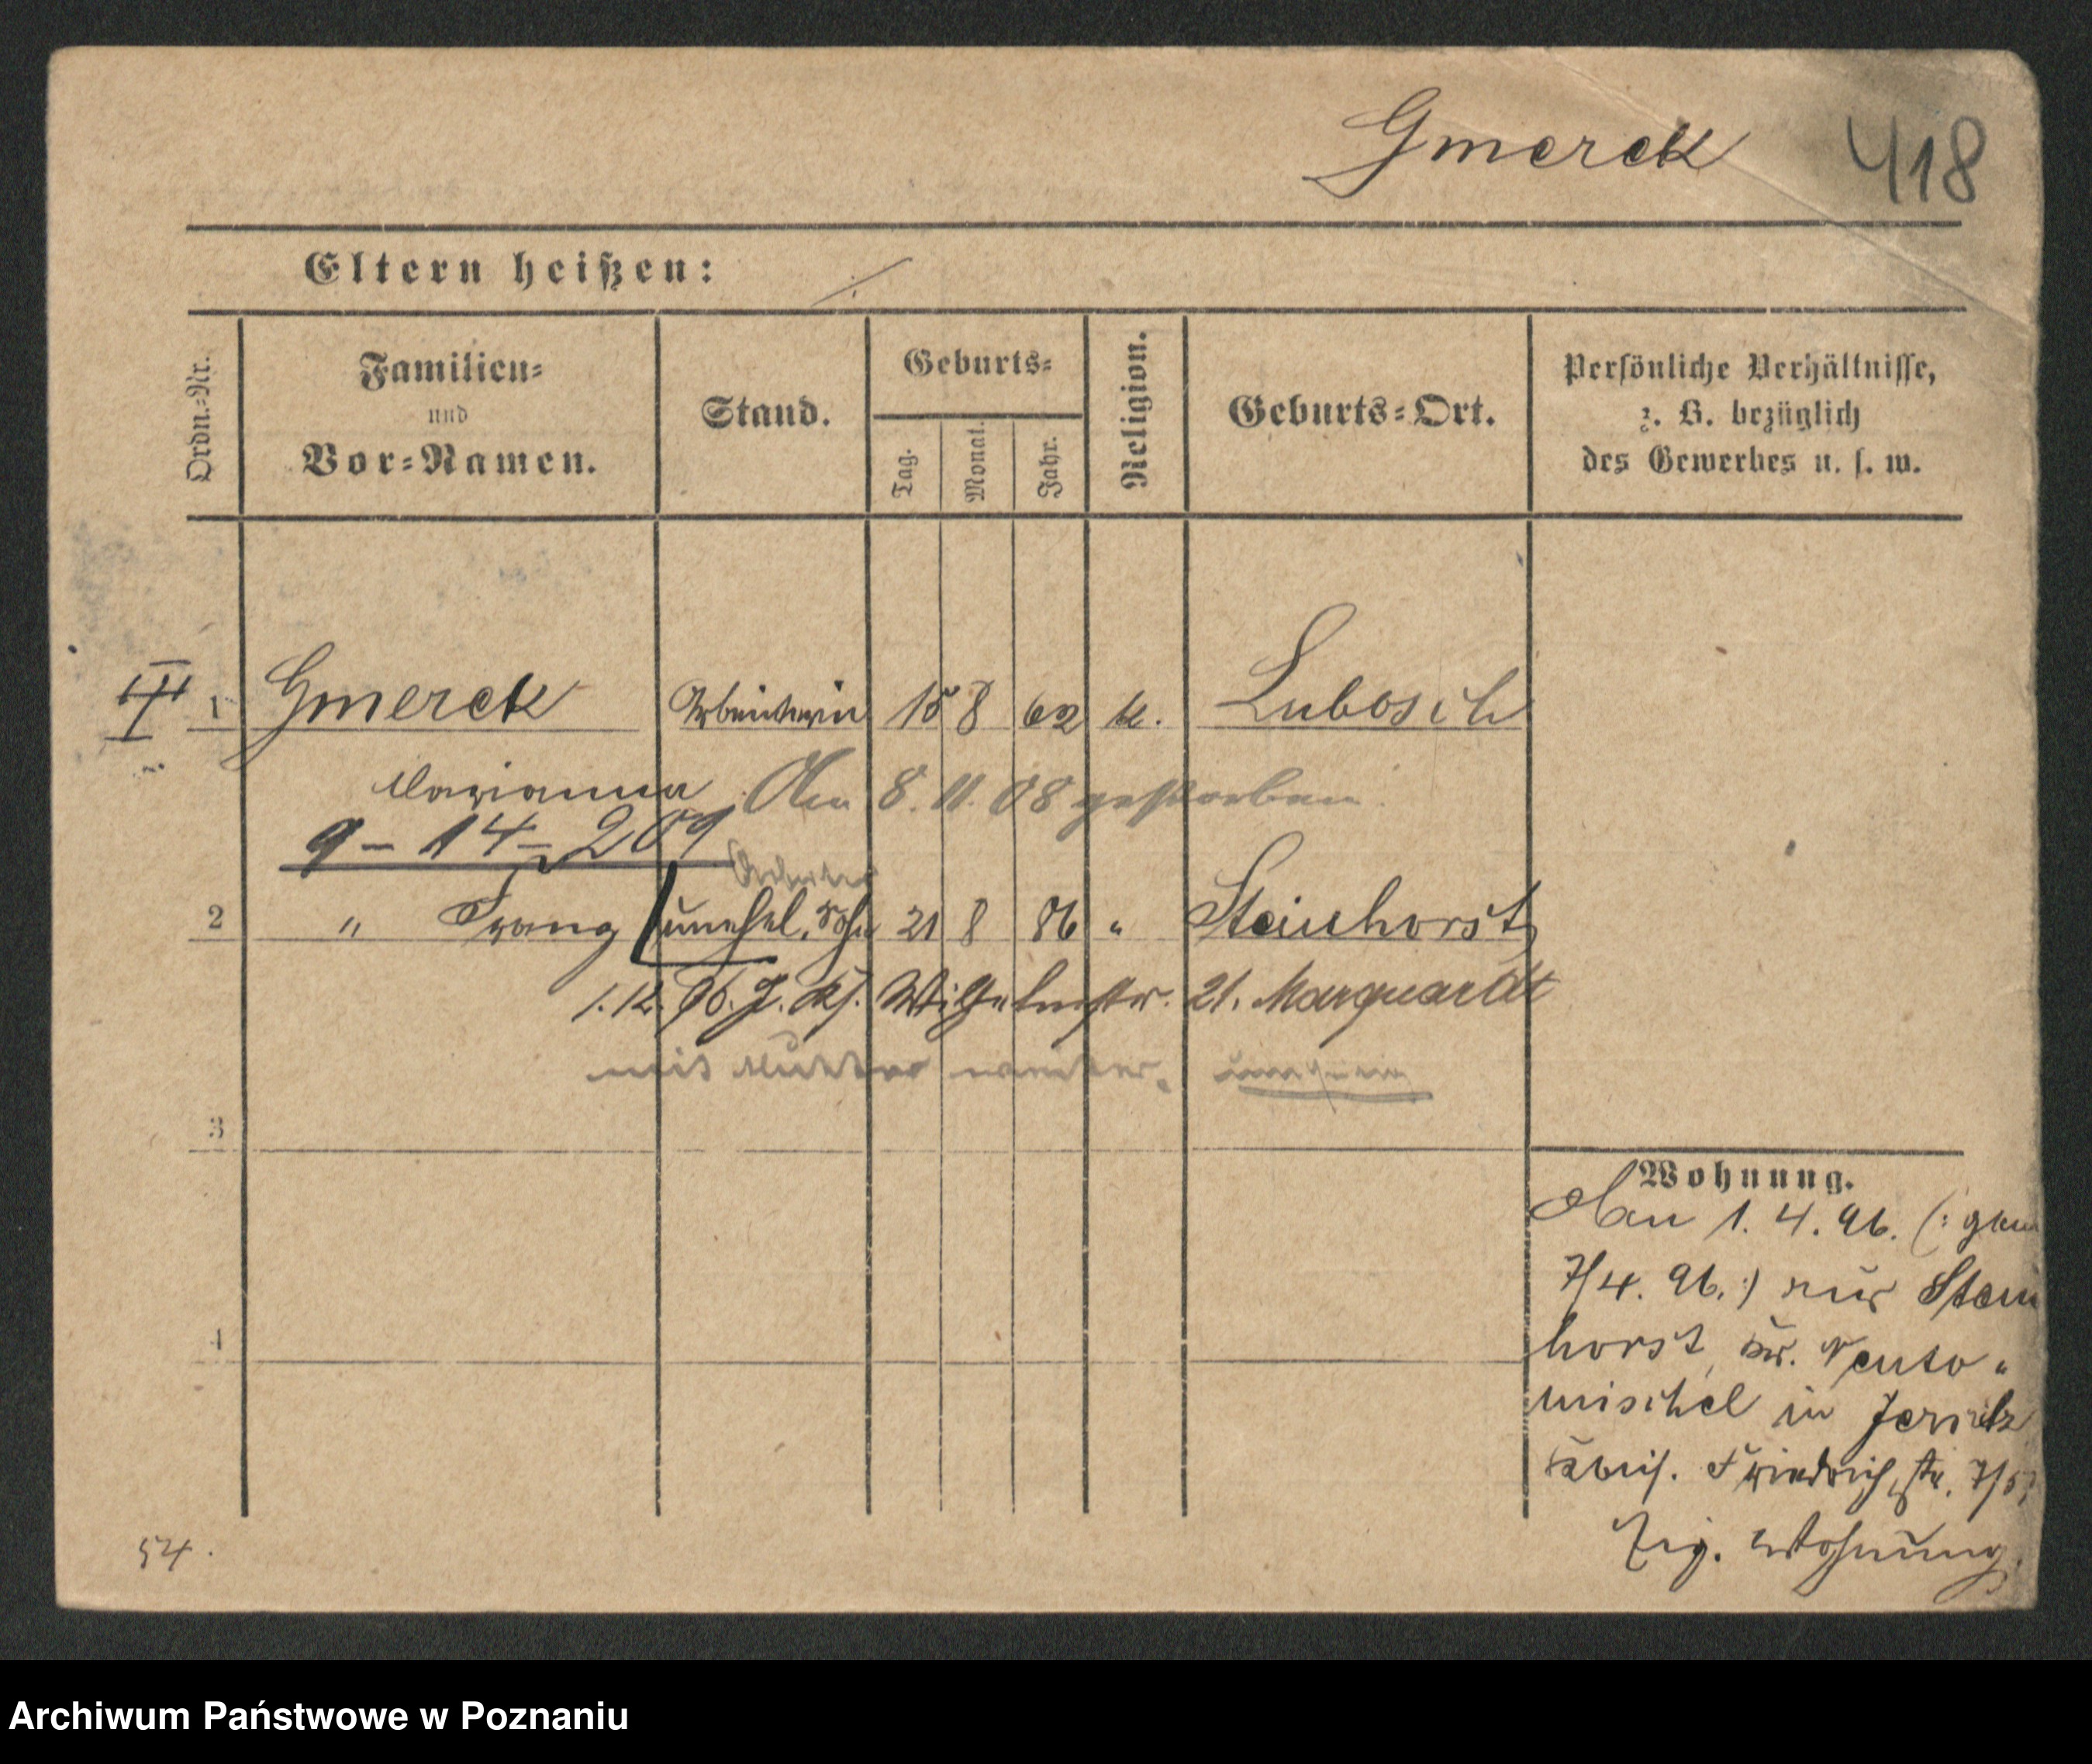 Gmerek 418
Eltern heißen: ./.
Ordn.=Nr.
Familien=
und
Vor=Namen.
Stand.
Geburts=
Tag.
Monat.
Jahr.
Religion.
Geburts=Ort.
Persönliche Verhältnisse,
z. B. bezüglich
des Gewerbes u. s. w.
III 1 Gmerek Arbeiterin 15 8 62 k. Lubosch
Marianna Am 8. 11. 08 gestorben.
9 – 14 – 209
Arbeiter
2 " Franz unehel. Sohn 21 8 86 " Steinhorst
1. 12. 96. J. Kf. Wilhelmstr. 21. Marquardt
mit Mutter
3
Wohnung.
Am 1. 4. 96. (: gem
7/4. 96. :) aus Stein
horst, Kr. Neuto"
mischel in Jersitz
Friedrichstr. 7/5,
4
Eig. Wohnung.
54.
Archiwum Państwowe w Poznaniu